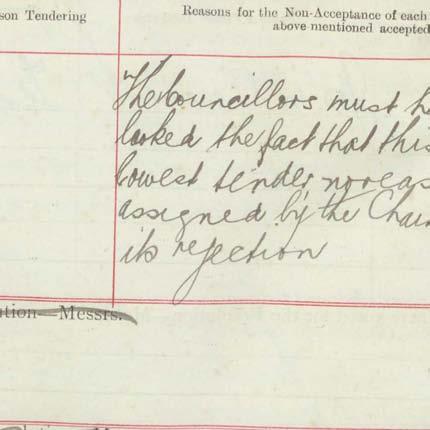 son Tendering
Reasons for the Non-Acceptance of each
above mentioned accepted
The Councillors must h
looked the fact that this
lowest tender, no reas
assigned by the Chair
its rejection
ution—Messrs.